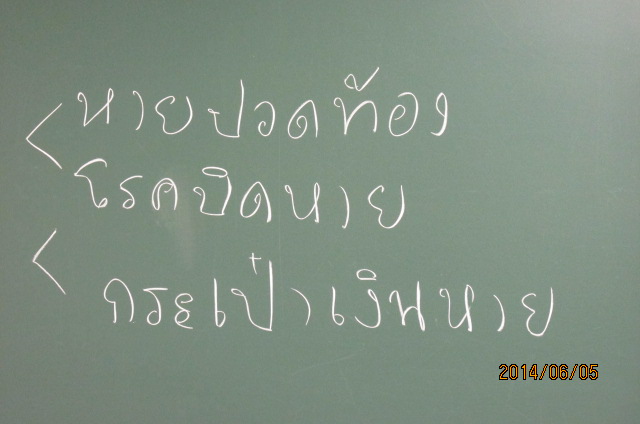 < หายปวดท้อง
โรคบิดหาย
< กระเป๋าเงินหาย
2014/06/05